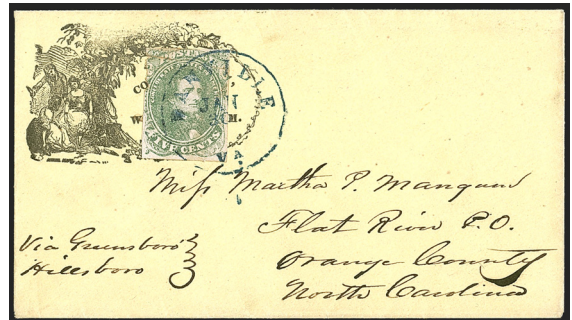 CO
W M.
FIVE CENTS
JAN
VA
Miss Martha P. Mangum
Flat River P.O.
Orange County
North Carolina
Via Greensboro
Hillsboro